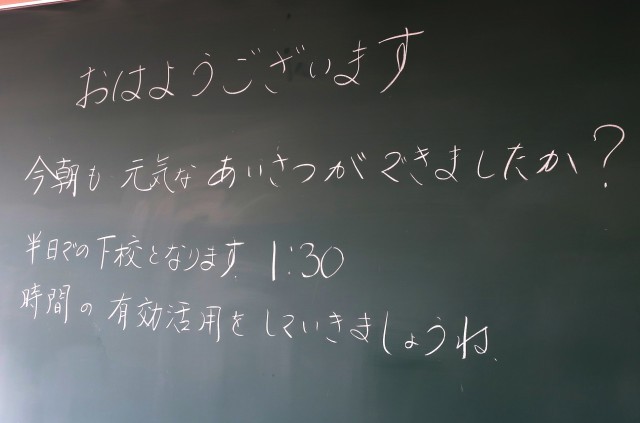 おはようございます
今朝も 元気な あいさつが できましたか?
半日での下校となります. 1:30
時間の有効活用をしていきましょうね.